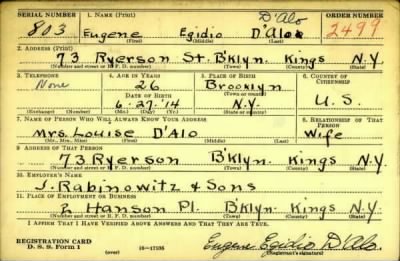 SERIAL NUMBER 1. NAME (Print) D'Alo ORDER NUMBER
803 Eugene Egidio D'Alo 2499
(First) (Middle) (Last)
2. ADDRESS (Print)
73 Ryerson St. B'klyn. Kings N.Y.
(Number and street or R. F. D. number) (Town) (County) (State)
3. TELEPHONE 4. AGE IN YEARS 5. PLACE OF BIRTH 6. COUNTRY OF CITIZENSHIP
None 26 Brooklyn
DATE OF BIRTH (Town or county)
6-27-'14 N.Y. U.S.
(Exchange) (Number) (Mo.) (Day) (Yr.) (State or country)
7. NAME OF PERSON WHO WILL ALWAYS KNOW YOUR ADDRESS 8. RELATIONSHIP OF THAT PERSON
Mrs. Louise D'Alo Wife
(Mr., Mrs., Miss) (First) (Middle) (Last)
9. ADDRESS OF THAT PERSON
73 Ryerson B'klyn. Kings N.Y.
(Number and street or R. F. D. number) (Town) (County) (State)
10. EMPLOYER'S NAME
J. Rabinowitz & Sons
11. PLACE OF EMPLOYMENT OR BUSINESS
2 Hanson Pl. B'klyn. Kings N.Y.
(Number and street or R. F. D. number) (Town) (County) (State)
I AFFIRM THAT I HAVE VERIFIED ABOVE ANSWERS AND THAT THEY ARE TRUE.
REGISTRATION CARD
D. S. S. Form 1 (over) 16—17105 Eugene Egidio D'Alo.
(Registrant's signature)